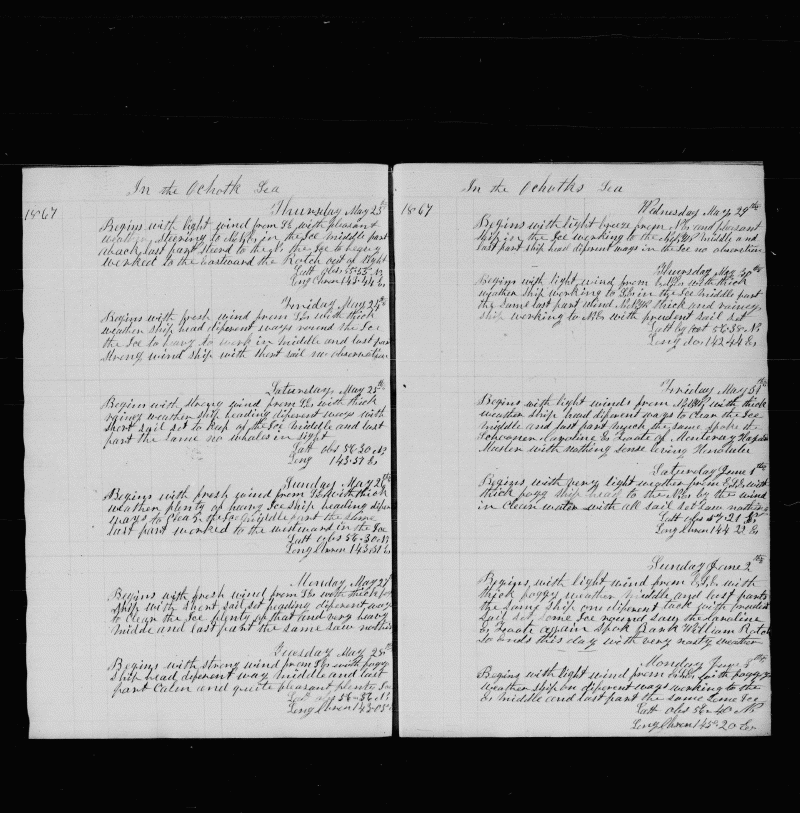 In the Ochotk Sea
1867
Thursday May 23th
Begins with light wind from SE with pleasant
weather steering to NEbr in the Ice middle part
aback last part stood to the S the Ice to heavy
worked to the Eastward the Rotch out of sight
Latt obs 55-55 N
Long Chron 143-44 Er
Friday May 24th
Begins with fresh wind from SEr with thick
weather ship head diferent ways round the Ice
the Ice to heavy to work in middle and last par
strong wind ship with short sail no observation
Saturday May 25th
Begins with strong wind from SEr with thick
rainey weather ship heading diferent ways with
short sail set to keep of the Ice middle and last
part the same no whales in sight
Latt obs 56-30 N
Long 143-57 Er
Sunday May 26th
Begins with fresh wind from with thick
weather plenty of heavy Ice ship heading difer
ways to clear of the Ice middle part the same
last part worked to the westward in the Ice
Latt obs 56-30 N
Long Chron 143-51 Er
Monday May 27
Begins with fresh wind from SEr with thick fo
ship with short sail set heading diferent way
to clean the Ice plenty of that and very heavy
middle and last part the same saw nothin
Tuesday May 28th
Begins with strong wind from SEr with fogg
ship head diferent way middle and last
part Calm and quite pleasant plenty Ice
Latt obs 56-56 N
Long Chron 143-05
In the Ochotks Sea
1867
Wednesday May 29th
Begins with light breeze from NEr and pleasant
ship in the Ice working to the middle and
last part ship head diferent ways in the Ice no observation
Thursday May 30th
Begins with light wind from with thick
weather ship working to in the Ice middle part
the same last part wind thick and rainey
ship working to NEr with prudent sail set
Latt by 56-38 N
Long do 142-44 Er
Friday May 31th
Begins with light winds from with thick
weather ship head diferent ways to clean the Ice
middle and last part much the same spoke the
Schooner Caroline E Foote of Monteray
with nothing sense leving Honolulu
Saturday June 1th
Begins with very light weather from with
thick fogg ship head to the NEr by the wind
in clean water with all sail set saw nothing
Latt obs 57-21 N
Long Chron 144-22 Er
Sunday June 2th
Begins with light wind from with
thick foggy weather middle and last parts
the same ship on diferent tack with prudent
sail set some Ice round saw the Caroline
E Foote again spok Bark William Rotch
so ends this day with very nasty weather
Monday June 3th
Begins with light wind from with foggy
weather ship on diferent ways working to the
Er middle and last part the same some Ice
Latt obs 56-40 N
Long Chron 145-20 Er